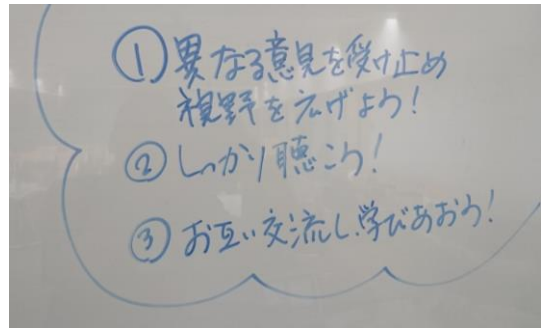 ① 異なる意見を受け止め
視野を広げよう!
② しっかり聴こう!
③ お互い交流し、学びあおう!